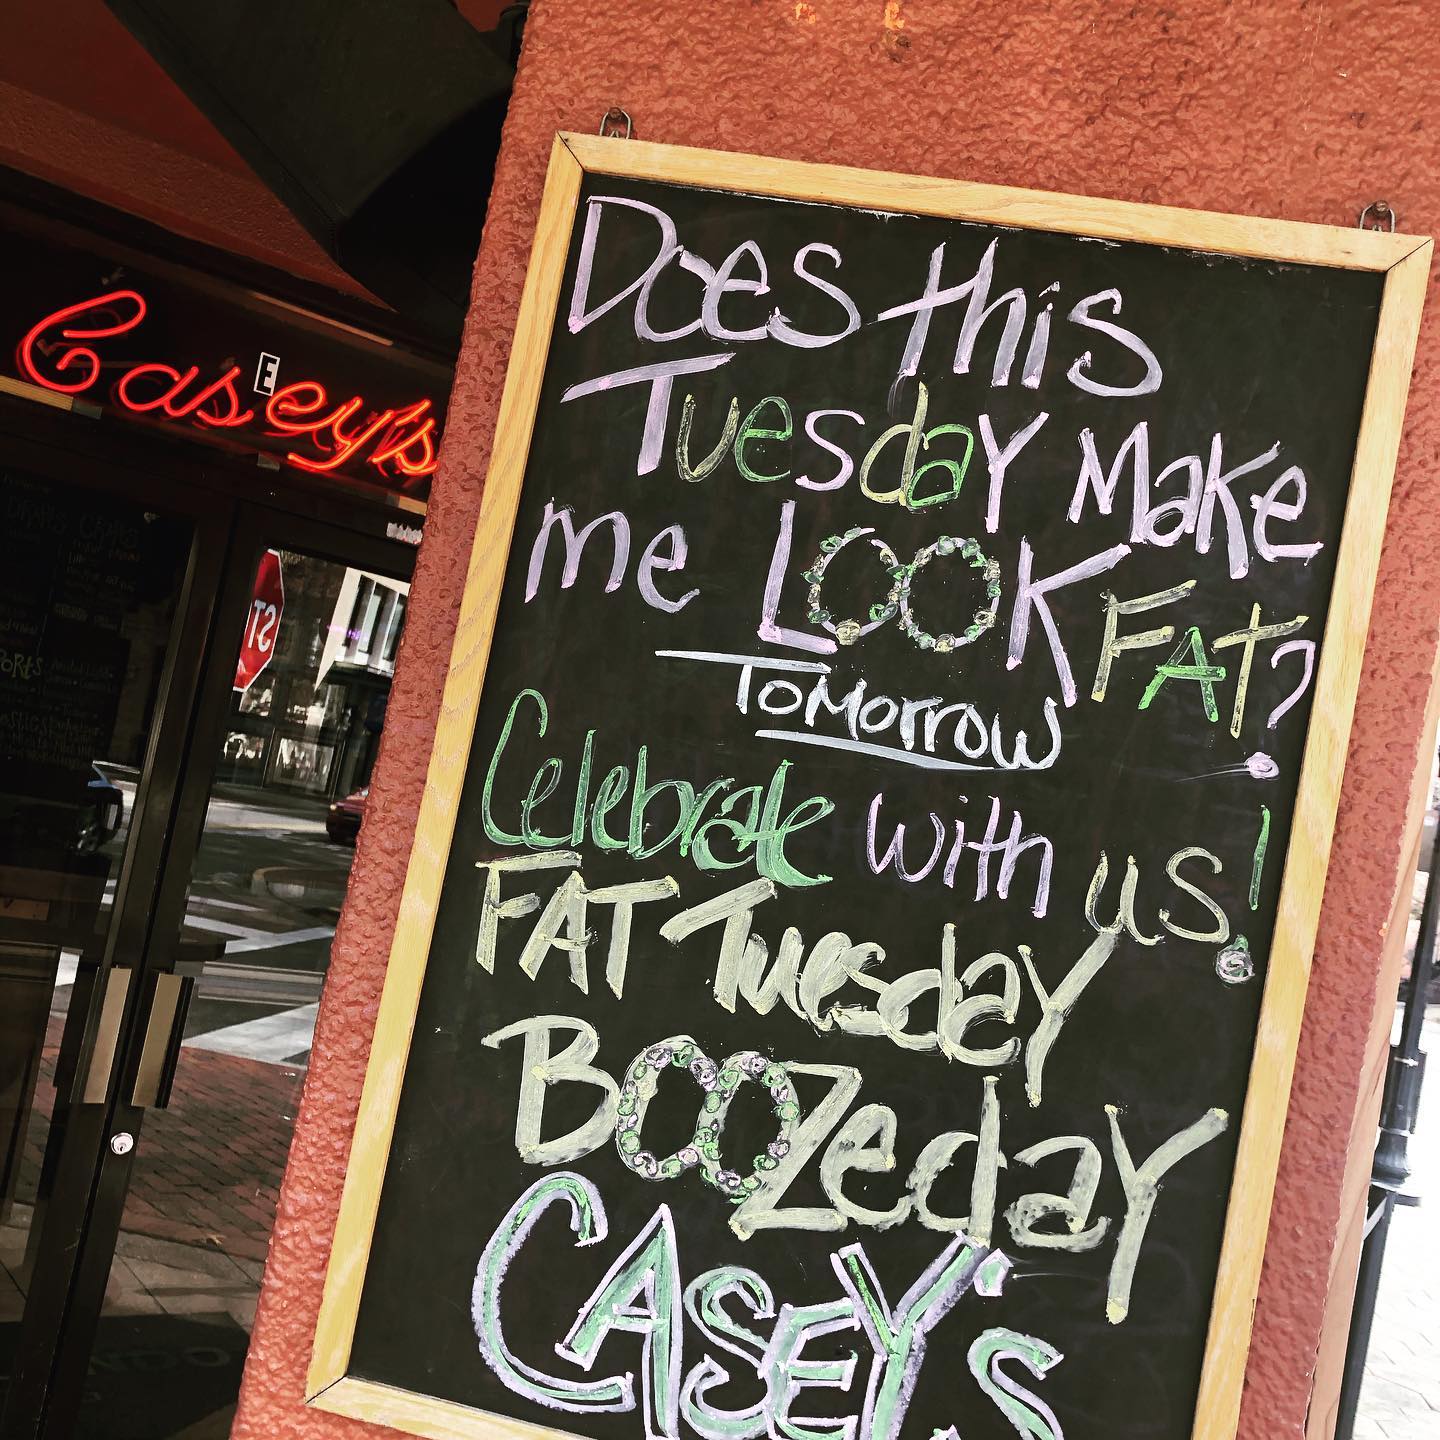 Casey's
E
ST
PORTS
Does this
Tuesday Make
me LOOK FAT?
Tomorrow
Celebrate with us!
FAT Tuesday
BOOZeday
CASEY'S